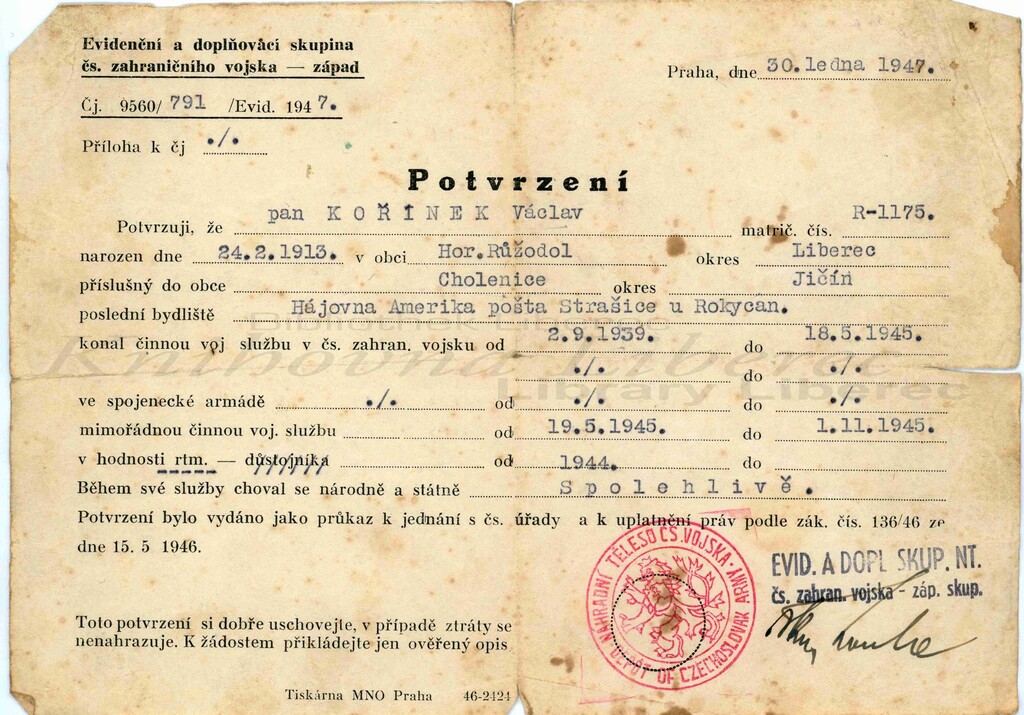 Evidenční a doplňovací skupina
čs. zahraničního vojska — západ
Praha, dne 30. ledna 1947.
Čj. 9560/ 791 /Evid. 1947.
Příloha k čj ./.
Potvrzení
Potvrzuji, že pan KOŘÍNEK Václav matrič. čís. R-1175.
narozen dne 24.2.1913. v obci Hor.Růžodol okres Liberec
příslušný do obce Cholenice okres Jičín
poslední bydliště Hájovna Amerika pošta Strašice u Rokycan.
konal činnou voj službu v čs. zahran. vojsku od 2.9.1939. do 18.5.1945.
./. do ./.
ve spojenecké armádě ./. od ./. do ./.
mimořádnou činnou voj. službu od 19.5.1945. do 1.11.1945.
v hodnosti rtm. — důstojníka od 1944. do
Během své služby choval se národně a státně Spolehlivě.
Potvrzení bylo vydáno jako průkaz k jednání s čs. úřady a k uplatnění práv podle zák. čís. 136/46 ze
dne 15. 5 1946.
NÁHRADNÍ TĚLESO ČS. VOJSKA · ARMY
DEPOT OF CZECHOSLOVAK
EVID. A DOPL SKUP. NT.
čs. zahran. vojska - záp. skup.
Toto potvrzení si dobře uschovejte, v případě ztráty se
nenahrazuje. K žádostem přikládejte jen ověřený opis
Tiskárna MNO Praha 46-2424
Knihovna Liberec
Library Liberec